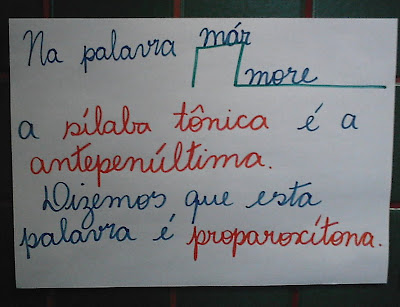 Na palavra már
more
a sílaba tônica é a
antepenúltima.
Dizemos que esta
palavra é proparoxítona.